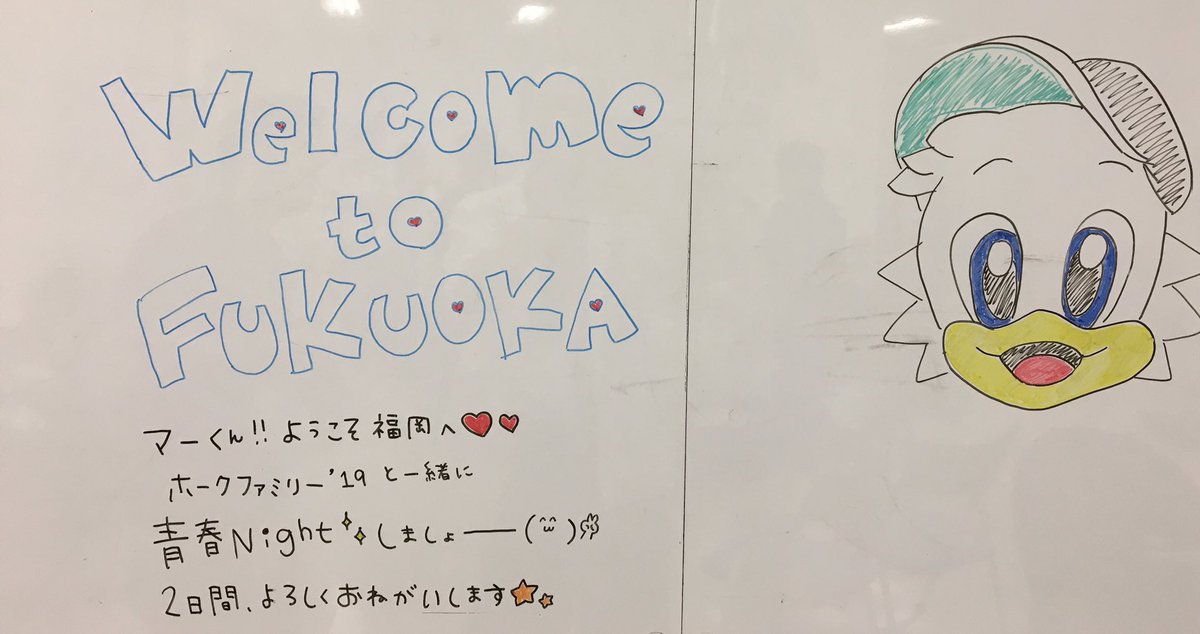 Welcome
to
FUKUOKA
マーくん!!ようこそ福岡へ
ホークファミリー'19 と一緒に
青春Nightしましょーー(^ω^)
2日間、よろしくおねがいします